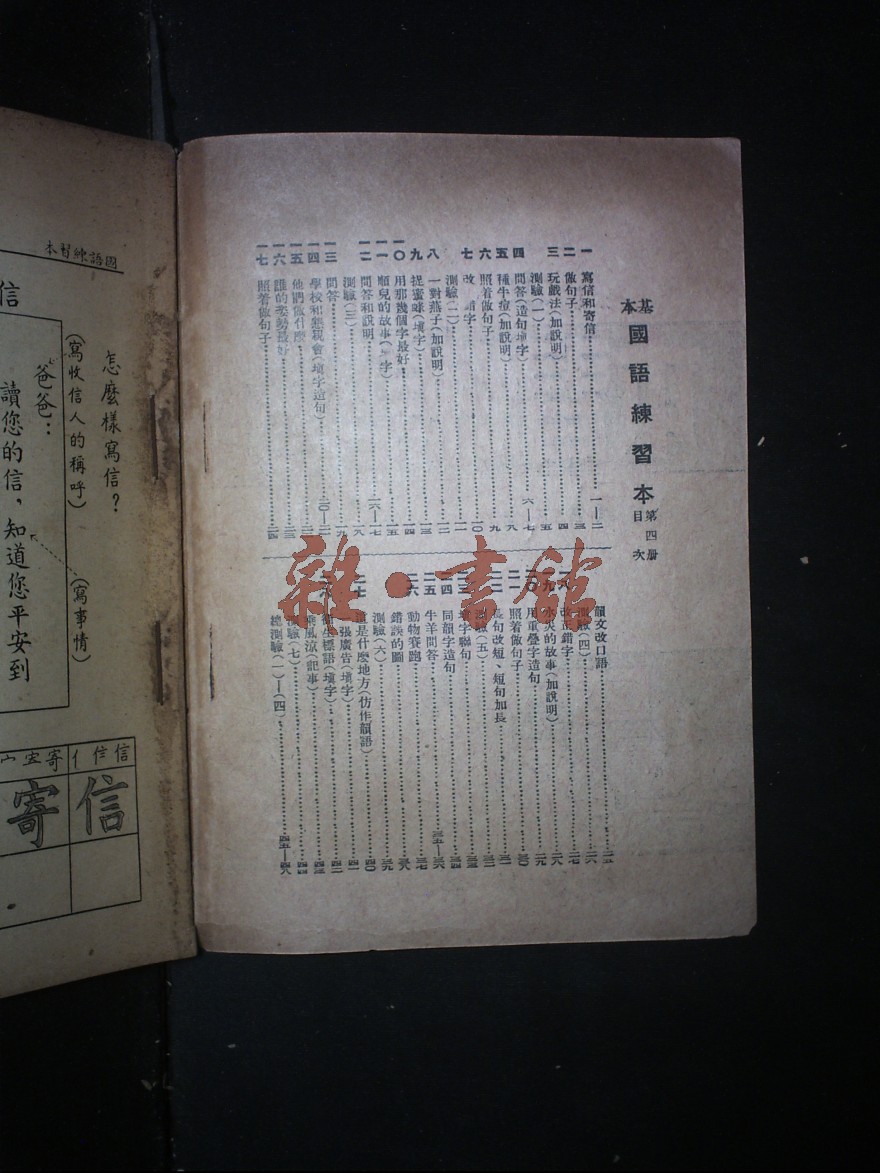 基本國語練習本
第四册
目次
一 寫信和寄信 一—二
二 做句子 三
三 玩戲法(加說明) 四
測驗(一) 五
四 問答(造句填字) 六—七
五 種牛痘(加說明) 八
六 照着做句子 九
七 改 錯字 一〇
測驗(二) 一一
八 一對燕子(加說明) 一二
九 捉蜜蜂(填字) 一三
一〇 用那幾個字最好 一四
一一 順兒的故事( 字) 一五
一二 問答和說明 一六—一七
測驗(三) 一八
一三 問答 一九
一四 學校和懇親會(填字造句) 二〇—二一
一五 他們做什麼 二二
一六 誰的姿勢最好 二三
一七 照着做句子 二四
韻文改口語 二五
測驗(四) 二六
改正錯字 二七
水災的故事(加說明) 二八
用重疊字造句 二九
照着做句子 三〇
長句改短、短句加長 三一
測驗(五) 三二
填字聯句 三三
同韻字造句 三四
二五 牛羊問答 三五—三六
二六 動物賽跑 三七
錯誤的圖 三八
測驗(六) 三九
二七 這是什麽地方(仿作韻語) 四〇
張廣告(填字) 四一
衛生標語(填字) 四二
乘風涼(記事) 四三
測驗(七) 四四
總測驗(一)—(四) 四五—四八
雜·書館
國語練習本
信
怎麼樣寫信?
(寫收信人的稱呼)
(寫事情)
爸爸:
讀您的信,知道您平安到
信 寄